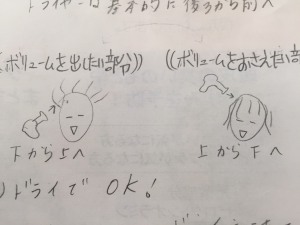 ドライヤーは基本的に後ろから前へ
ボリュームを出したい部分)) ((ボリュームをおさえたい部
下から上へ 上から下へ
ドライで OK!